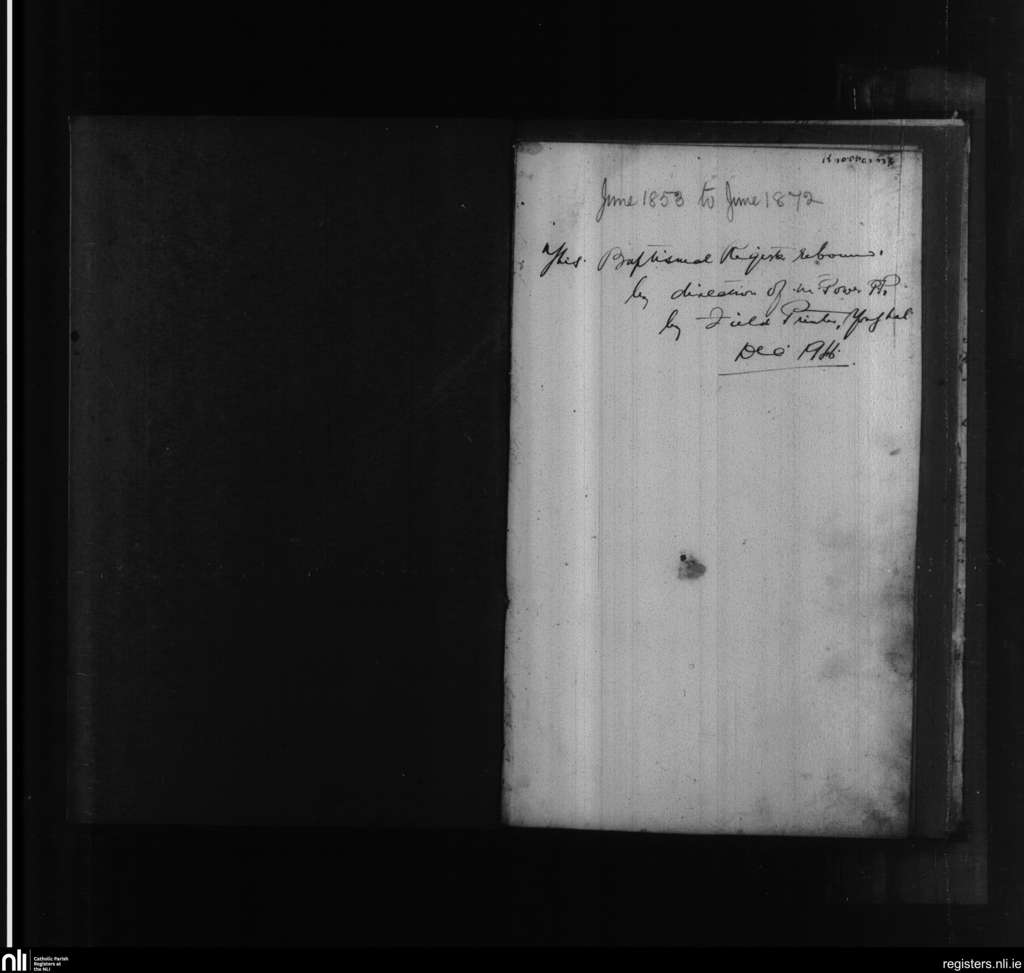 June 1853 to June 1872
This Baptismal Register rebound
by direction of Power P.P.
by Field Printer, Youghal
Dec
nli
Catholic Parish
Registers at
the NLI
registers.nli.ie